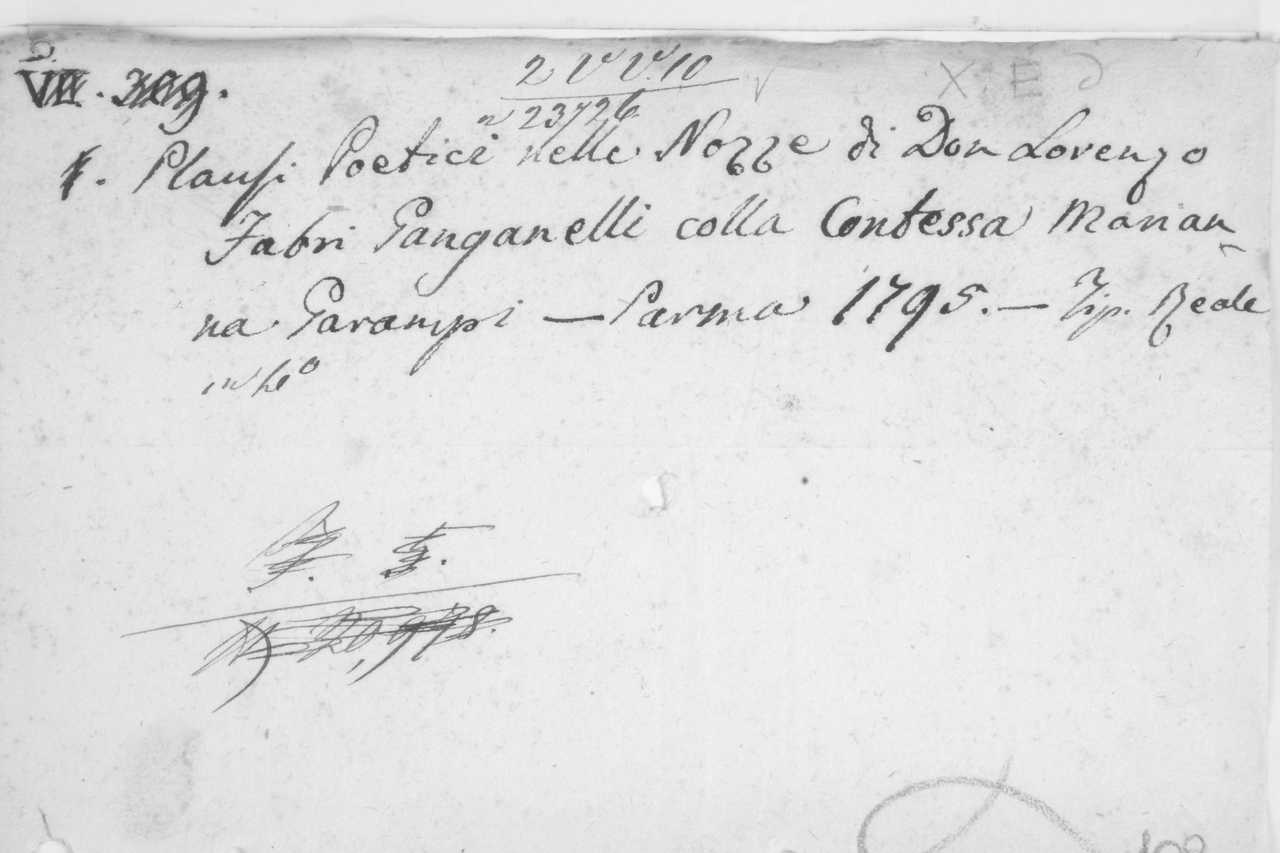 VII. 369.
2 V V. 10
n 23726
X. E
Plausi Poetici nelle Nozze di Don Lorenzo
Fabri Ganganelli colla Contessa Marian-
na Garampi — Parma 1795. — Tip. Reale
in 4º
20,978.